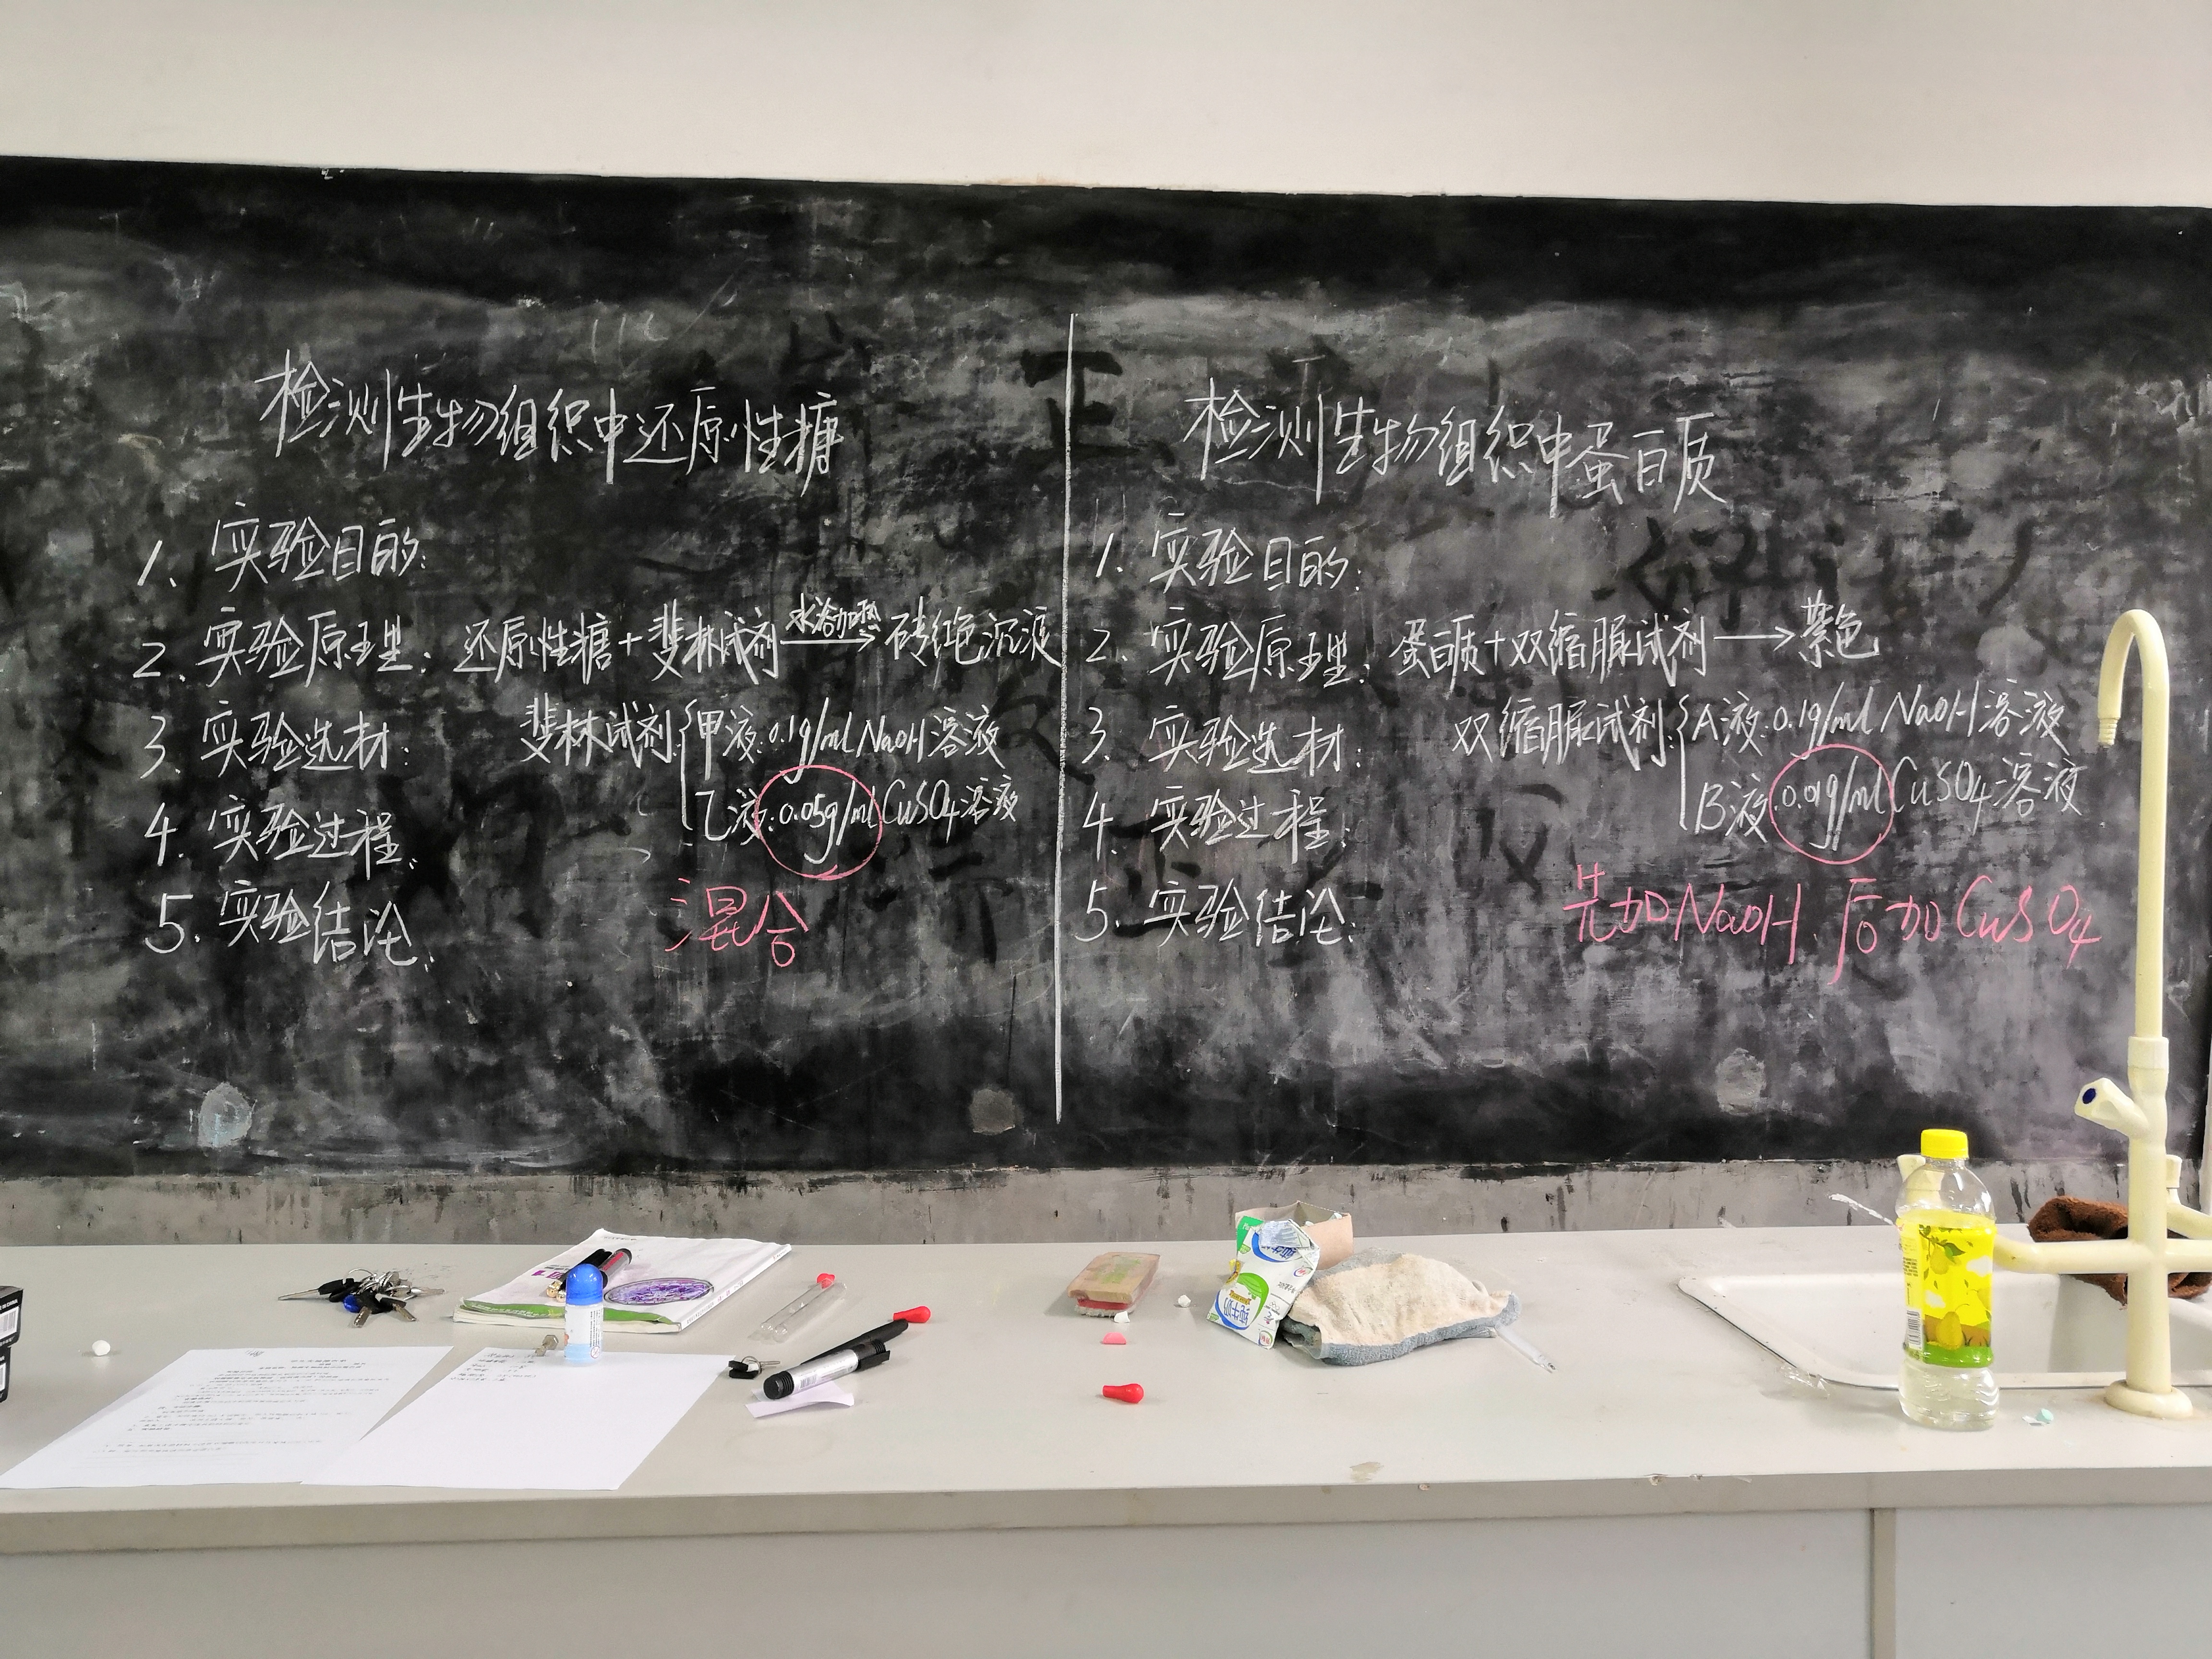 检测生物组织中还原性糖
1. 实验目的:
2. 实验原理: 还原性糖+斐林试剂 水浴加热→ 砖红色沉淀
3. 实验选材: 斐林试剂{甲液:0.1g/ml NaOH溶液
乙液:0.05g/ml CuSO4溶液
4. 实验过程:
5. 实验结论:
混合
检测生物组织中蛋白质
1. 实验目的:
2. 实验原理: 蛋白质+双缩脲试剂→紫色
3. 实验选材: 双缩脲试剂:{A液:0.1g/ml NaOH溶液
B液:0.01g/ml CuSO4溶液
4. 实验过程:
5. 实验结论:
先加NaOH.后加CuSO4
纯牛奶